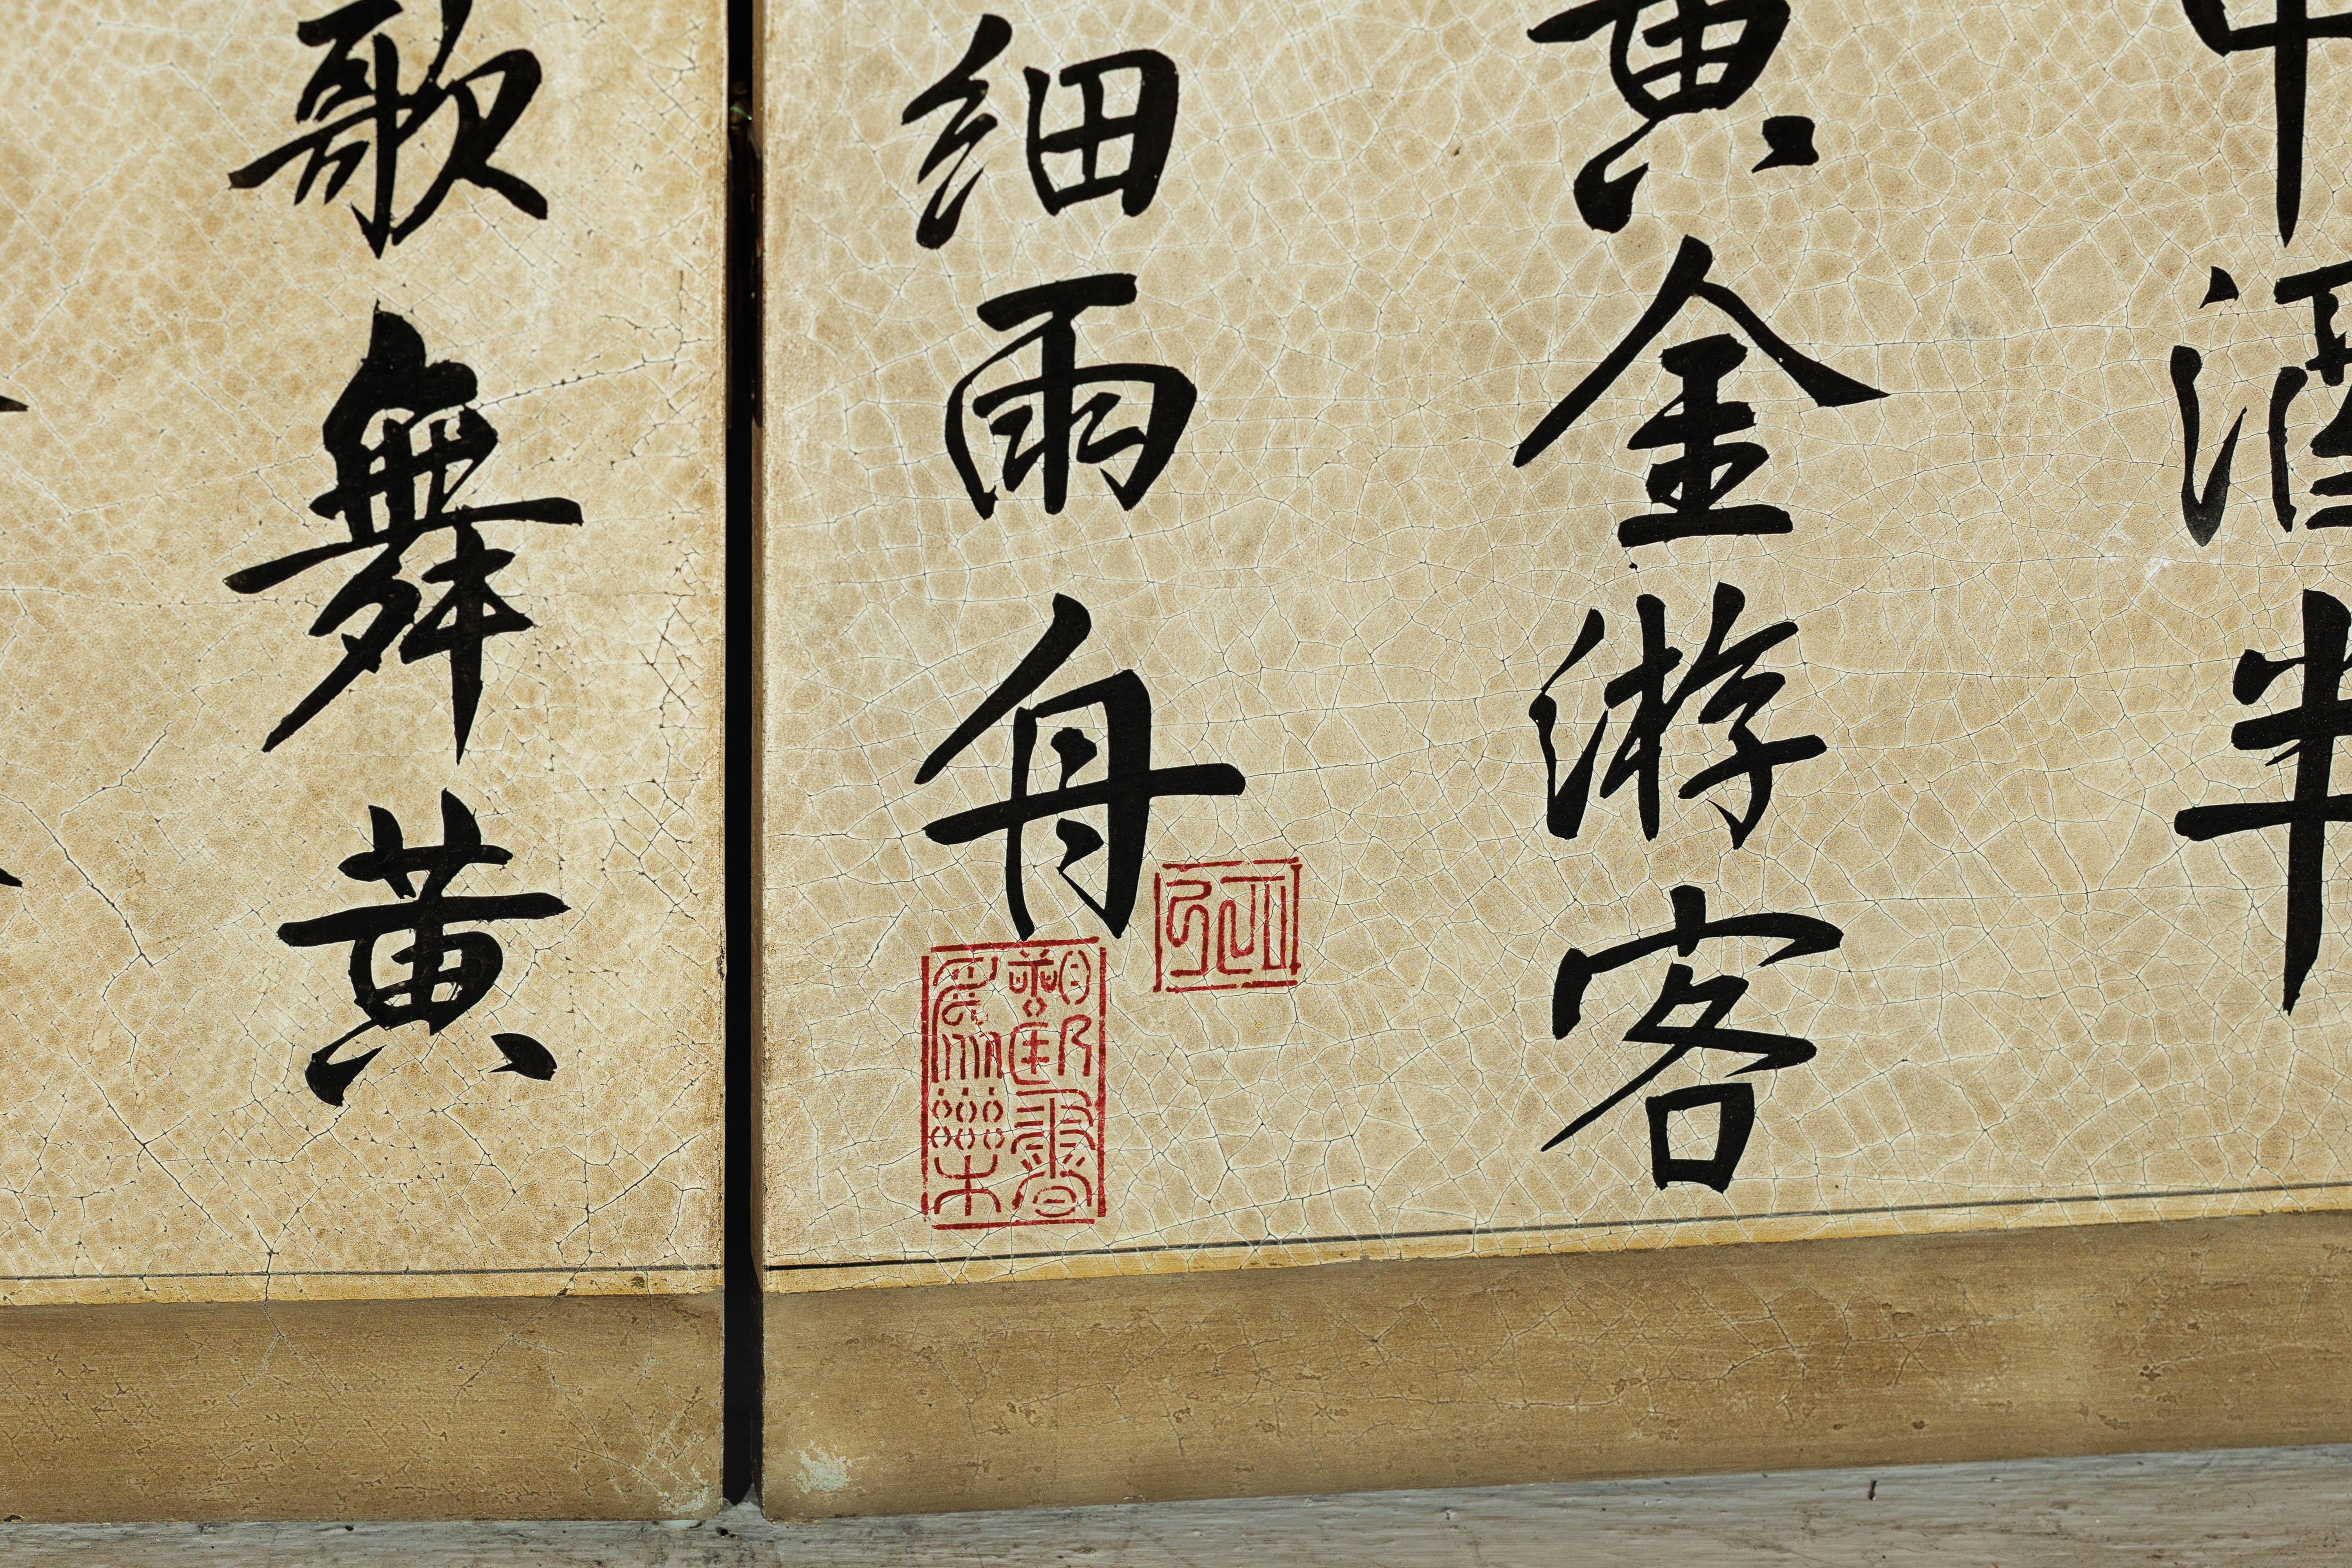 酒半
黄金游客
細雨舟
歌舞黄